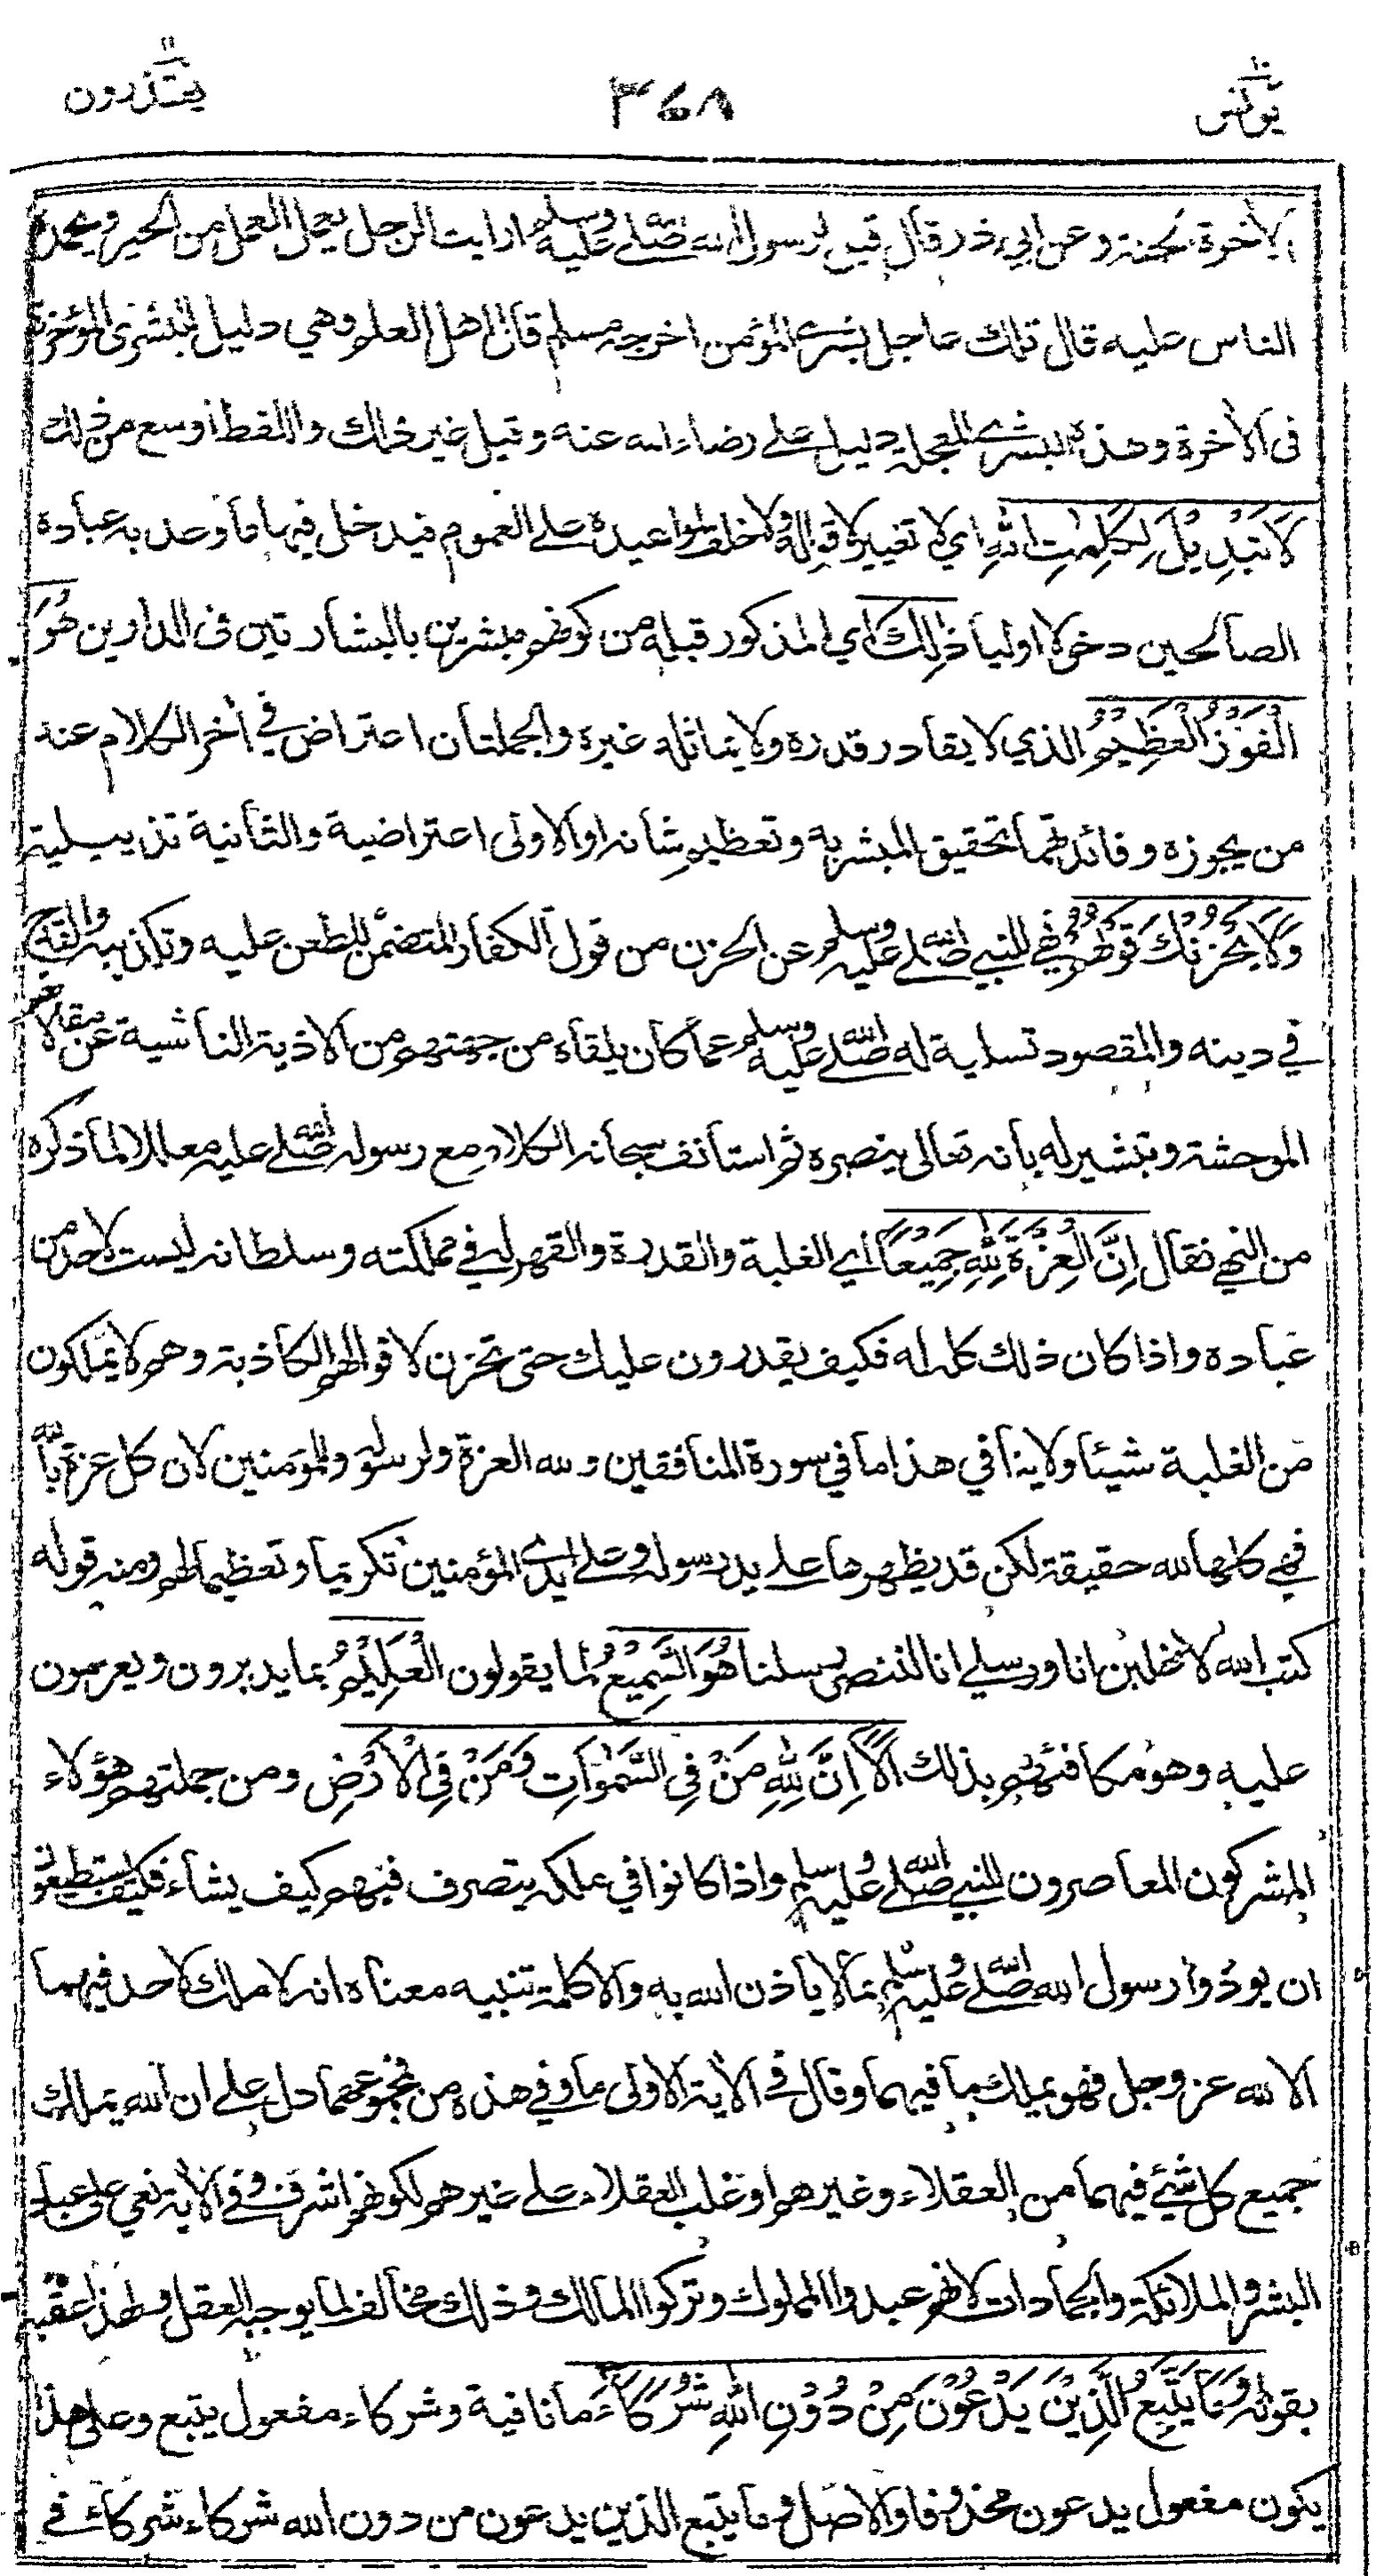 يونس ١٠
٣٦٨
يعتذرون ١١
الآخرة بجنة وعن ابي ذر قال قيل لرسول الله صلى الله عليه وسلم ارايت الرجل يعمل العمل من الخير ويحمده
الناس عليه قال تلك عاجل بشرى المؤمن اخرجه مسلم قال اهل العلم وهي دليل للبشرى المؤخرة
فى الآخرة وهذه البشرى المعجلة دليل على رضاء الله عنه وقيل غير ذلك واللفظ اوسع من ذلك
لَا تَبْدِيْلَ لِكَلِمٰتِ اللهِ اي لا تغيير لاقواله ولا خلف لمواعيده على العموم فيدخل فيها ما وعد به عباده
الصالحين دخولا اوليا ذٰلِكَ اي المذكور قبله من كونهم مبشرين بالبشارتين فى الدارين هُوَ
الْفَوْزُ الْعَظِيْمُ الذي لا يقادر قدره ولا يماثله غيره والجملتان اعتراض في آخر الكلام عند
من يجوزه وفائدتهما تحقيق المبشر به وتعظيم شانه او الاولى اعتراضية والثانية تذييلية
وَلَا يَحْزُنْكَ قَوْلُهُمْ نهي للنبي صلى الله عليه وسلم عن الحزن من قول الكفار المتضمن للطعن عليه وتكذيبه والقدح
في دينه والمقصود تسلية له صلى الله عليه وسلم عما كان يلقاه من جهتهم من الاذية الناشية عن مقالاتهم
الموحشة وتبشير له بانه تعالى ينصره ثم استانف سبحانه الكلام مع رسوله صلى الله عليه معللا لما ذكره
من النهي فقال اِنَّ الْعِزَّةَ لِلّٰهِ جَمِيْعًا اي الغلبة والقدرة والقهر له في مملكته وسلطانه ليست لاحد من
عباده واذا كان ذلك كله له فكيف يقدرون عليك حتى تحزن لاقوالهم الكاذبة وهم لا يملكون
من الغلبة شيئا ولا ينافي هذا ما في سورة المنافقين ولله العزة ولرسوله وللمؤمنين لان كل عزة بالله
فهي كلها لله حقيقة لكن قد يظهرها على يد رسوله وعلى ايدي المؤمنين تكريما وتعظيما لهم ومنه قوله
كتب الله لاغلبن انا ورسلي انا لننصر رسلنا هُوَ السَّمِيْعُ لما يقولون الْعَلِيْمُ بما يدبرون ويعزمون
عليه وهو مكافئهم بذلك اَلَآ اِنَّ لِلّٰهِ مَنْ فِى السَّمٰوٰاتِ وَمَنْ فِى الْاَرْضِ ومن جملتهم هؤلاء
المشركون المعاصرون للنبي صلى الله عليه وسلم واذا كانوا في ملكه يتصرف فيهم كيف يشاء فكيف يستطيعون
ان يوذوا رسول الله صلى الله عليه وسلم بما لا ياذن الله به والا كلمة تنبيه معناه انه لا ملك لاحد فيهما
الا لله عز وجل فهو يملك ما فيهما وقال فى الآية الاولى ما وفي هذه من فمجموعهما دل على ان الله يملك
جميع كل شيئ فيهما من العقلاء وغيرهم او غلب العقلاء على غيرهم لكونهم اشرف وفى الآية نعي على عباد
البشر والملائكة والجمادات لانهم عبدوا المملوك وتركوا المالك وذلك مخالف لما يوجبه العقل ولهذا عقبه
بقوله وَمَا يَتَّبِعُ الَّذِيْنَ يَدْعُوْنَ مِنْ دُوْنِ اللهِ شُرَكَآءَ ما نافية وشركاء مفعول يتبع وعلى هذا
يكون مفعول يدعون محذوفا والاصل وما يتبع الذين يدعون من دون الله شركاء شركاء فى